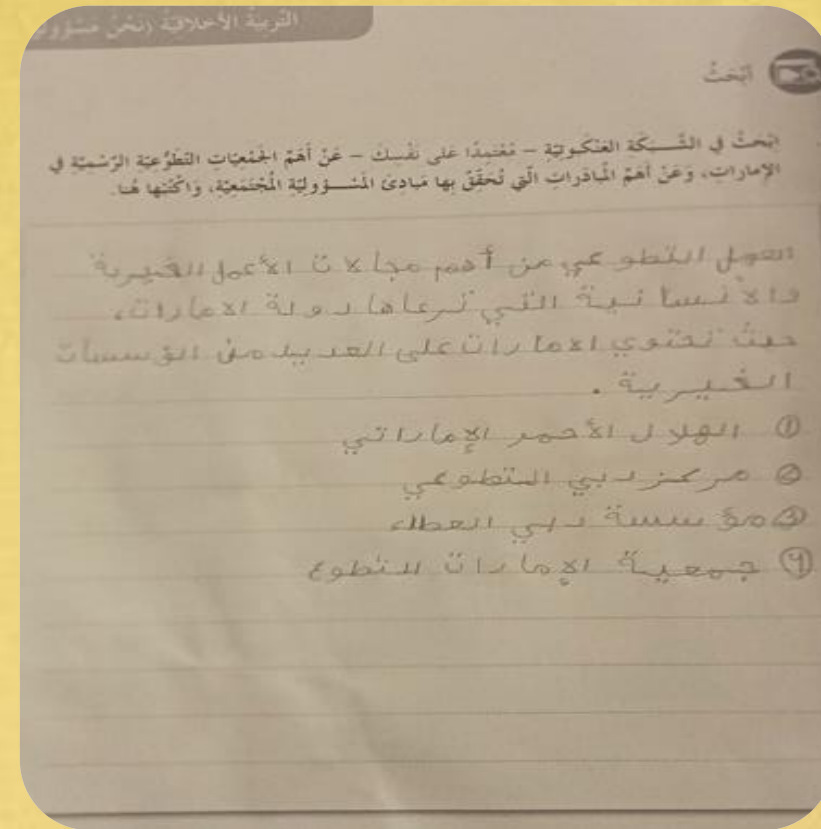 التربية الأخلاقية (نحن مسؤولو
أبحث
ابْحَثْ في الشَّبَكَةِ العَنْكَبوتِيَّةِ – مُعْتَمِدًا عَلى نَفْسِكَ – عَنْ أَهَمِّ الجَمْعِيّاتِ التَّطَوُّعِيَّةِ الرَّسْمِيَّةِ في
الإماراتِ، وَعَنْ أَهَمِّ المُبادَراتِ الَّتي تُحَقِّقُ بِها مَبادِئَ المَسْؤوليَّةِ المُجْتَمَعِيَّةِ، وَاكْتُبْها هُنا.
العمل التطوعي من أهم مجالات الأعمل الخيرية
والأنسانية التي ترعاها دولة الامارات،
حيث تحتوي الامارات على العديد من المؤسسات
الخيرية.
① الهلال الأحمر الإماراتي
② مركز دبي التطوعي
③ مؤسسة دبي العطاء
④ جمعية الإمارات للتطوع